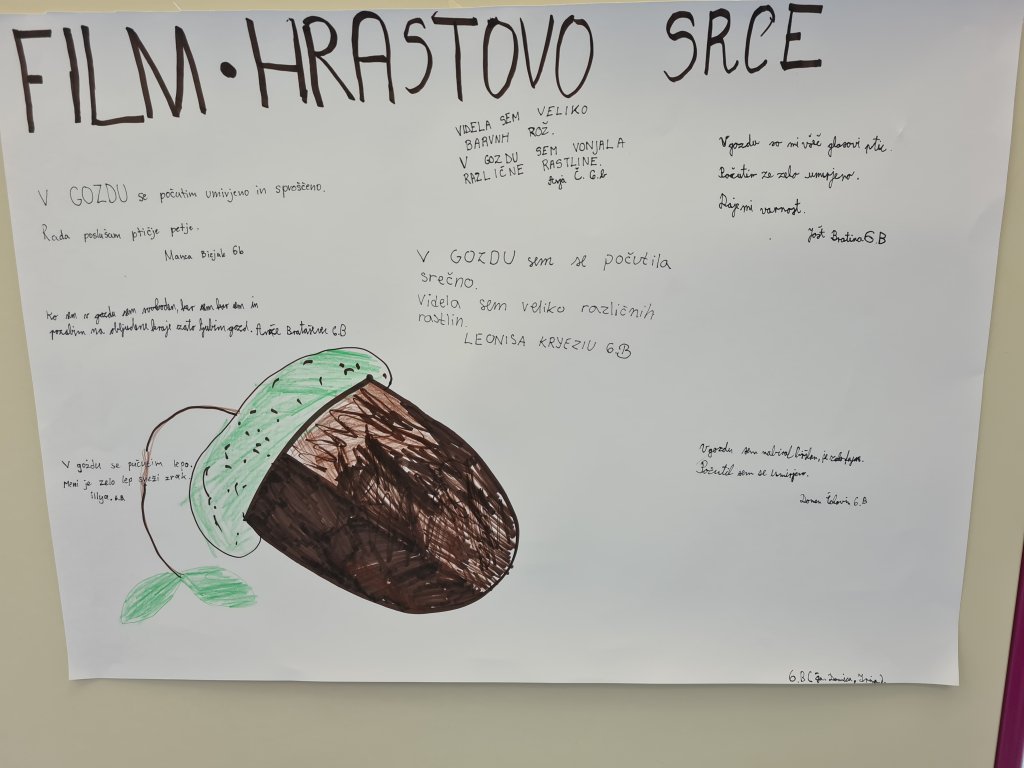 FILM • HRASTOVO SRCE
VIDELA SEM VELIKO
BARVNH ROŽ.
V GOZDU SEM VONJALA
RAZLIČNE RASTLINE.
Anja Č. 6.b
V gozdu so mi všeč glasovi ptic.
Počutim ze zelo umirjeno.
Daje mi varnost.
Jošt Bratina 6.B
V GOZDU se počutim umivjeno in sproščeno.
Rada poslušam ptičje petje.
6b
V GOZDU sem se počutila
srečno.
Videla sem veliko različnih
rastlin.
LEONISA KRYEZIU 6.B
Ko sem v gozdu sem svoboden, ker sem ker sem in
pozabim na zato ljubim gozd. 6.B
V gozdu se počutim lepo.
Meni je zelo lep sveži zrak.
Illya. 6.B
V gozdu sem nabiral je zelo
Počutil sem se umirjeno.
6.B
6.B (